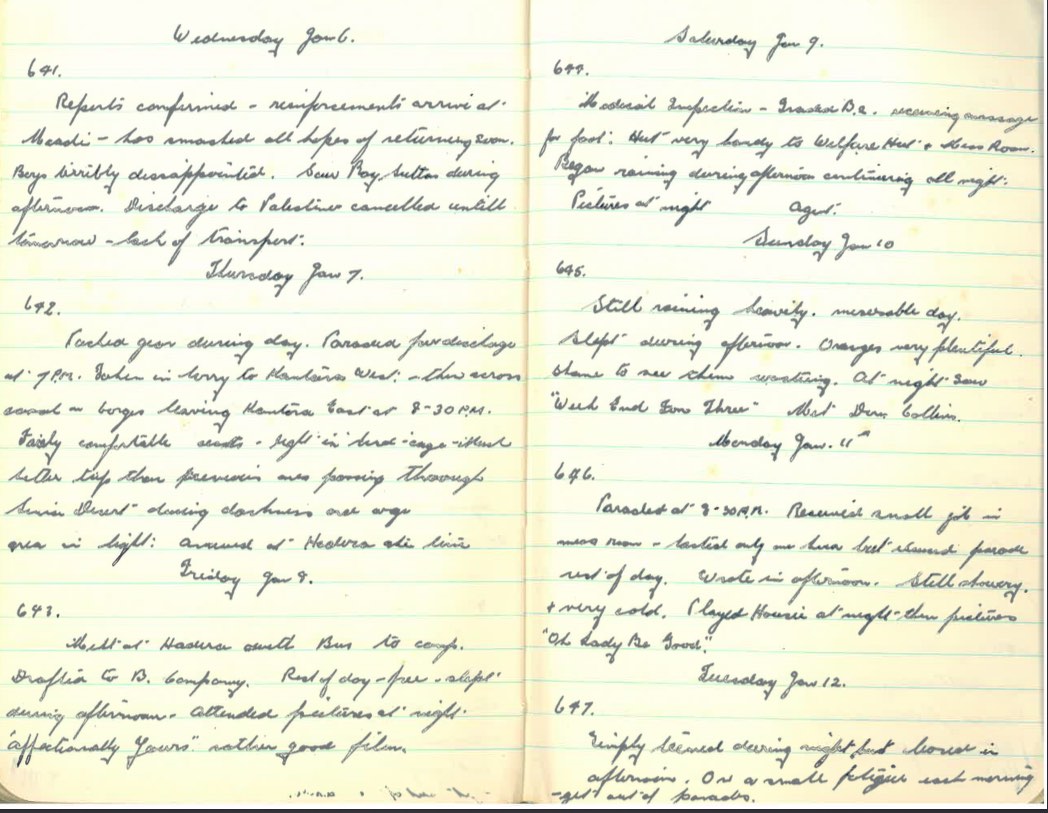 Wednesday Jan 6.
641.
Reports confirmed - reinforcements arrive at
Maadi - has smashed all hopes of returning soon.
Boys terribly dissappointed. Saw Ray Sutton during
afternoon. Discharge to Palestine cancelled untill
tomorrow - lack of transport.
Thursday Jan 7.
642.
Packed gear during day. Paraded for discharge
at 7 P.M. Taken in lorry to Kantara West. - then across
canal on barges leaving Kantara East at 8-30 P.M.
Fairly comfortable seats - light in
better trip than previous ones passing through
Sinai Desert during darkness
area in light. arrived at Hadera
Friday Jan 8.
643.
Melt at Hadera with Bus to camp.
Drafted to B. Company. Rest of day - free - slept
during afternoon - attended pictures at night.
"Affectionally Yours" rather good film.
Saturday Jan 9.
644.
Medical Inspection - Graded B.2. receiving massage
for foot. Hut very handy to Welfare Hut + Mess Room.
Began raining during afternoon continuering all night.
Pictures at night again.
Sunday Jan 10
645.
Still raining heavily. miserable day.
Slept during afternoon. Oranges very plentiful.
shame to see them wasting. At night saw
"Week End For Three" Met Collins.
Monday Jan. 11th
646.
Paraded at 8-30 P.M. Received small job in
mess room - lasted only one hour but missed parade
rest of day. Wrote in afternoon. Still showery.
+ very cold. Played Housie at night - then pictures
"Oh Lady Be Good".
Tuesday Jan 12.
647.
during night but in
afternoon. On a small fatigue each morning
- get out of parades.